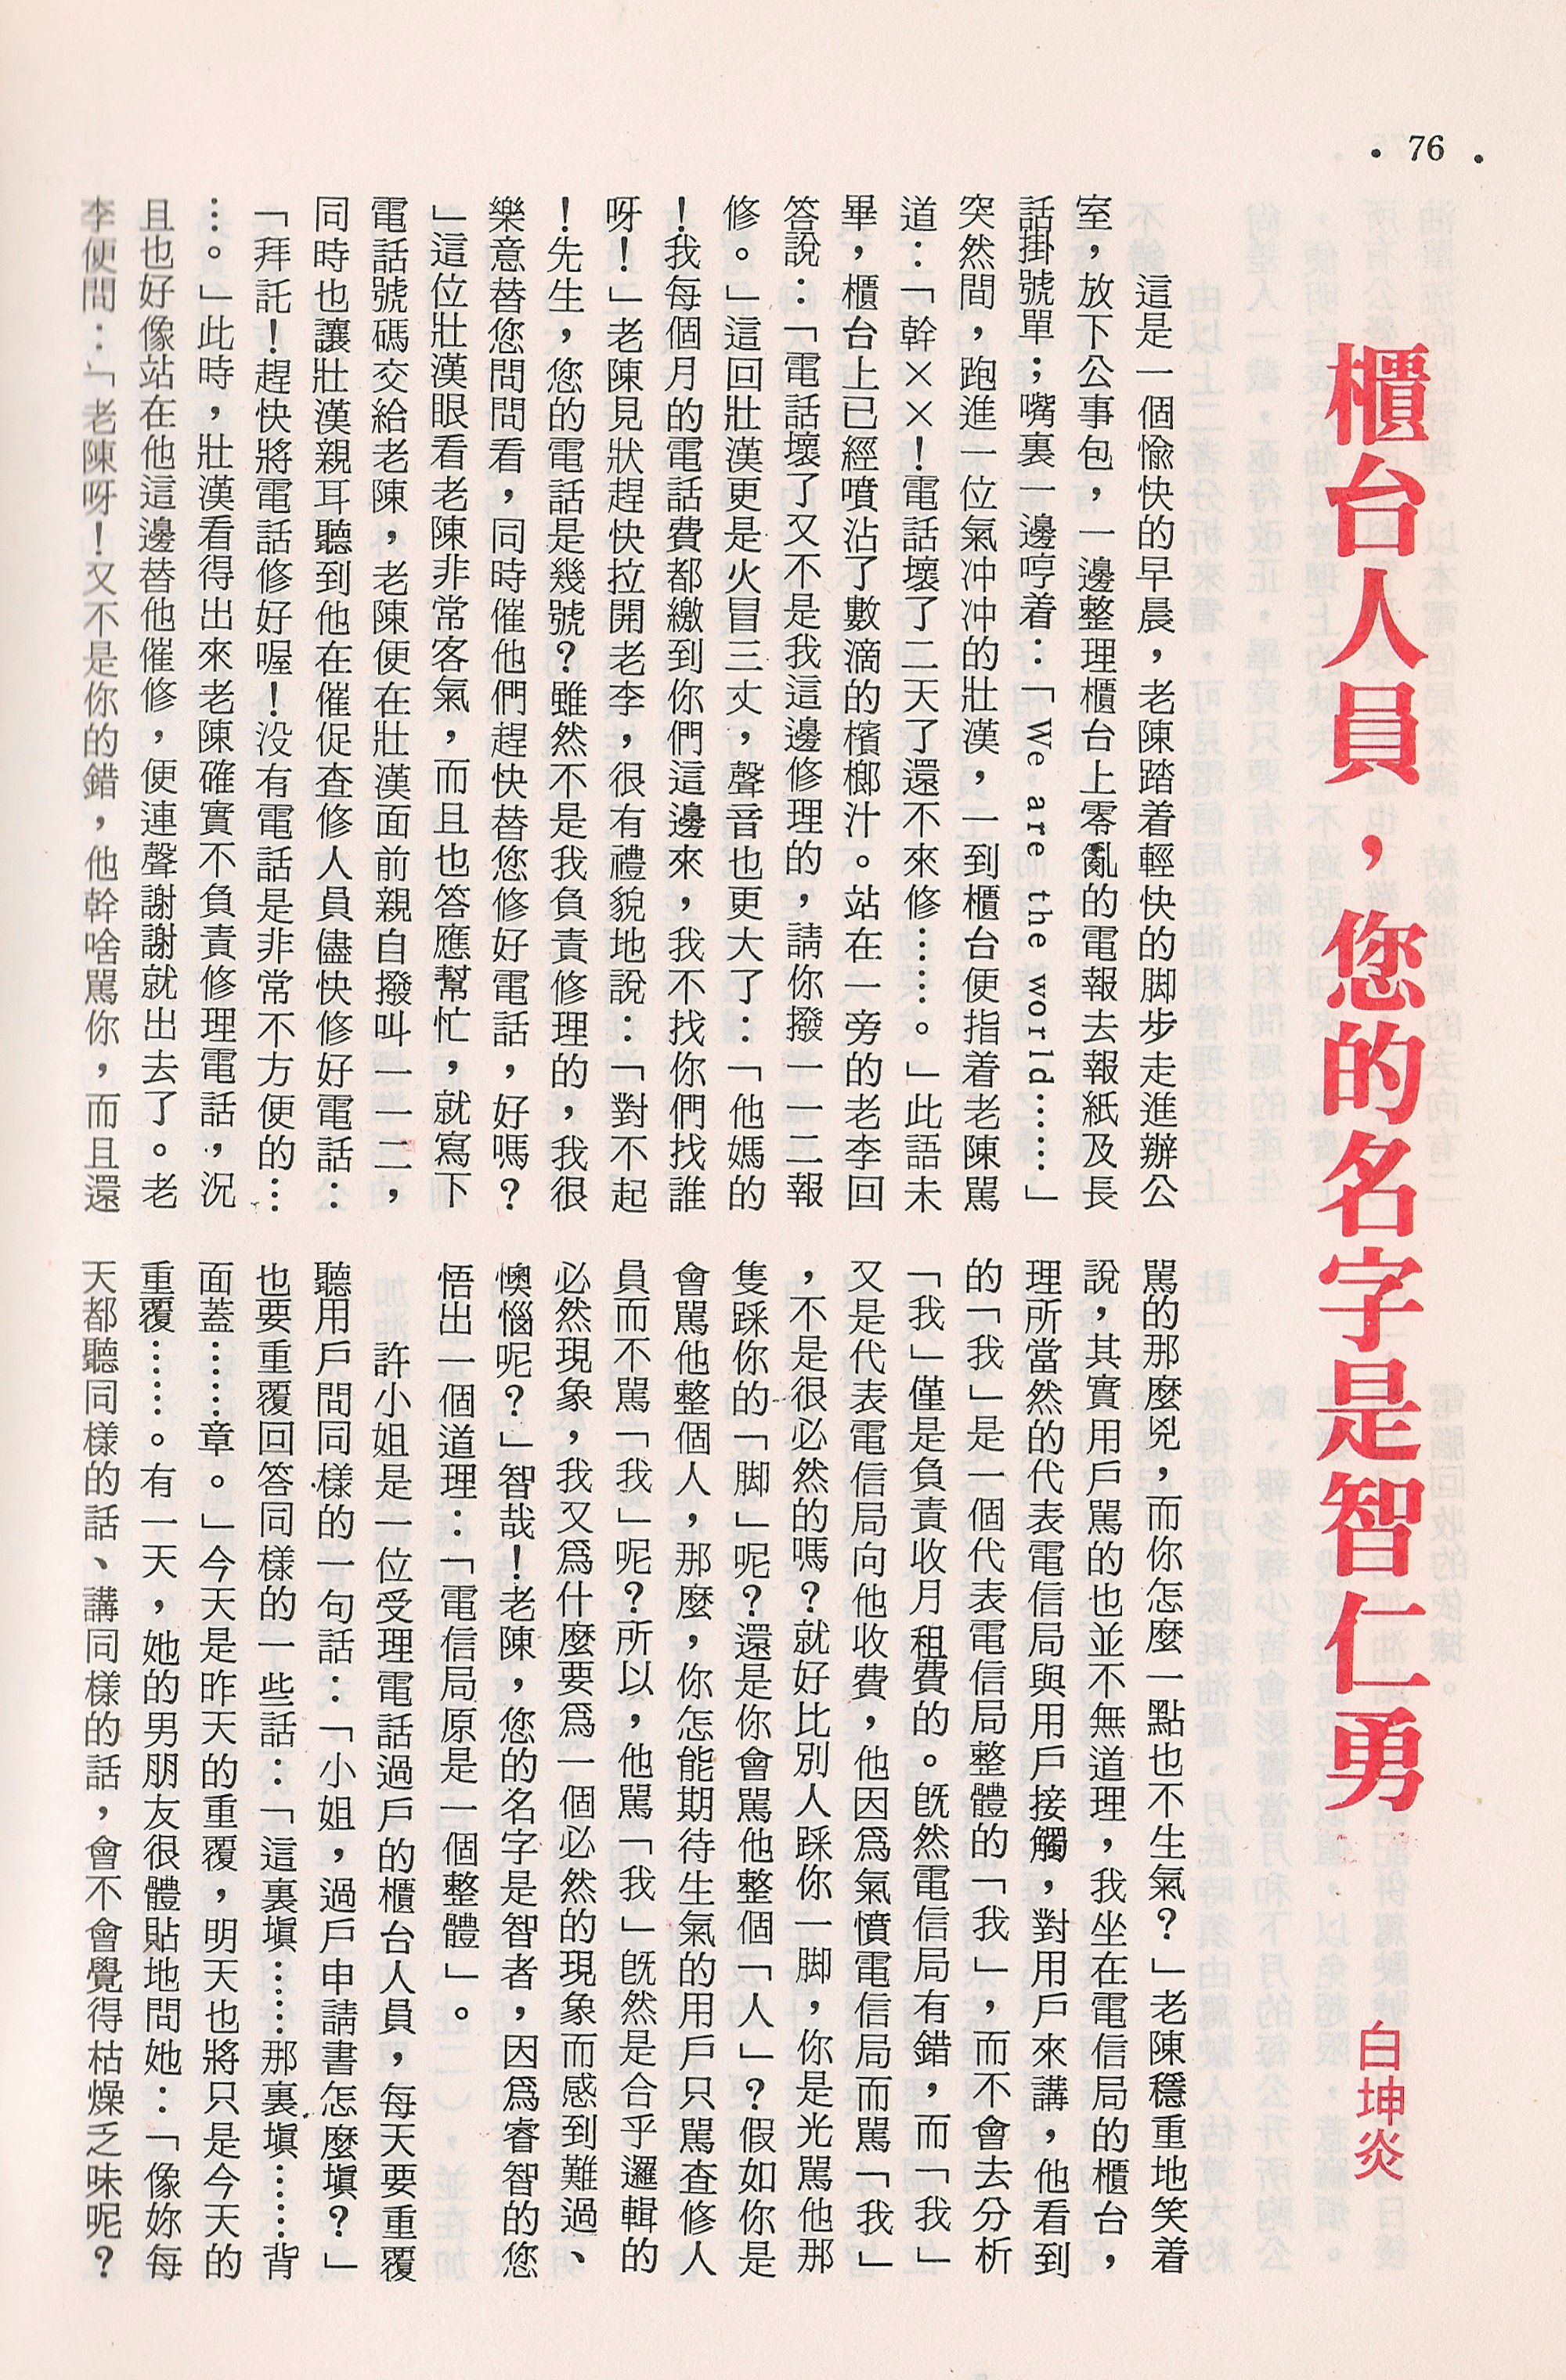 • 76 •
櫃台人員，您的名字是智仁勇
白坤炎
這是一個愉快的早晨，老陳踏着輕快的脚步走進辦公
室，放下公事包，一邊整理櫃台上零亂的電報去報紙及長
話掛號單；嘴裏一邊哼着：「We are the world……」
突然間，跑進一位氣冲冲的壯漢，一到櫃台便指着老陳罵
道：「幹××！電話壞了二天了還不來修……。」此語未
畢，櫃台上已經噴沾了數滴的檳榔汁。站在一旁的老李回
答說：「電話壞了又不是我這邊修理的，請你撥一一二報
修。」這回壯漢更是火冒三丈，聲音也更大了：「他媽的
！我每個月的電話費都繳到你們這邊來，我不找你們找誰
呀！」老陳見狀趕快拉開老李，很有禮貌地說：「對不起
！先生，您的電話是幾號？雖然不是我負責修理的，我很
樂意替您問問看，同時催他們趕快替您修好電話，好嗎？
」這位壯漢眼看老陳非常客氣，而且也答應幫忙，就寫下
電話號碼交給老陳，老陳便在壯漢面前親自撥叫一一二，
同時也讓壯漢親耳聽到他在催促查修人員儘快修好電話：
「拜託！趕快將電話修好喔！没有電話是非常不方便的…
…。」此時，壯漢看得出來老陳確實不負責修理電話，況
且也好像站在他這邊替他催修，便連聲謝謝就出去了。老
李便問：「老陳呀！又不是你的錯，他幹啥罵你，而且還
罵的那麼兇，而你怎麼一點也不生氣？」老陳穩重地笑着
說，其實用戶罵的也並不無道理，我坐在電信局的櫃台，
理所當然的代表電信局與用戶接觸，對用戶來講，他看到
的「我」是一個代表電信局整體的「我」，而不會去分析
「我」僅是負責收月租費的。旣然電信局有錯，而「我」
又是代表電信局向他收費，他因爲氣憤電信局而罵「我」
，不是很必然的嗎？就好比別人踩你一脚，你是光罵他那
隻踩你的「脚」呢？還是你會罵他整個「人」？假如你是
會罵他整個人，那麼，你怎能期待生氣的用戶只罵查修人
員而不罵「我」呢？所以，他罵「我」旣然是合乎邏輯的
必然現象，我又爲什麼要爲一個必然的現象而感到難過、
懊惱呢？」智哉！老陳，您的名字是智者，因爲睿智的您
悟出一個道理：「電信局原是一個整體」。
許小姐是一位受理電話過戶的櫃台人員，每天要重覆
聽用戶問同樣的一句話：「小姐，過戶申請書怎麼塡？」
也要重覆回答同樣的一些話：「這裏塡……那裏塡……背
面蓋……章。」今天是昨天的重覆，明天也將只是今天的
重覆……。有一天，她的男朋友很體貼地問她：「像妳每
天都聽同樣的話、講同樣的話，會不會覺得枯燥乏味呢？